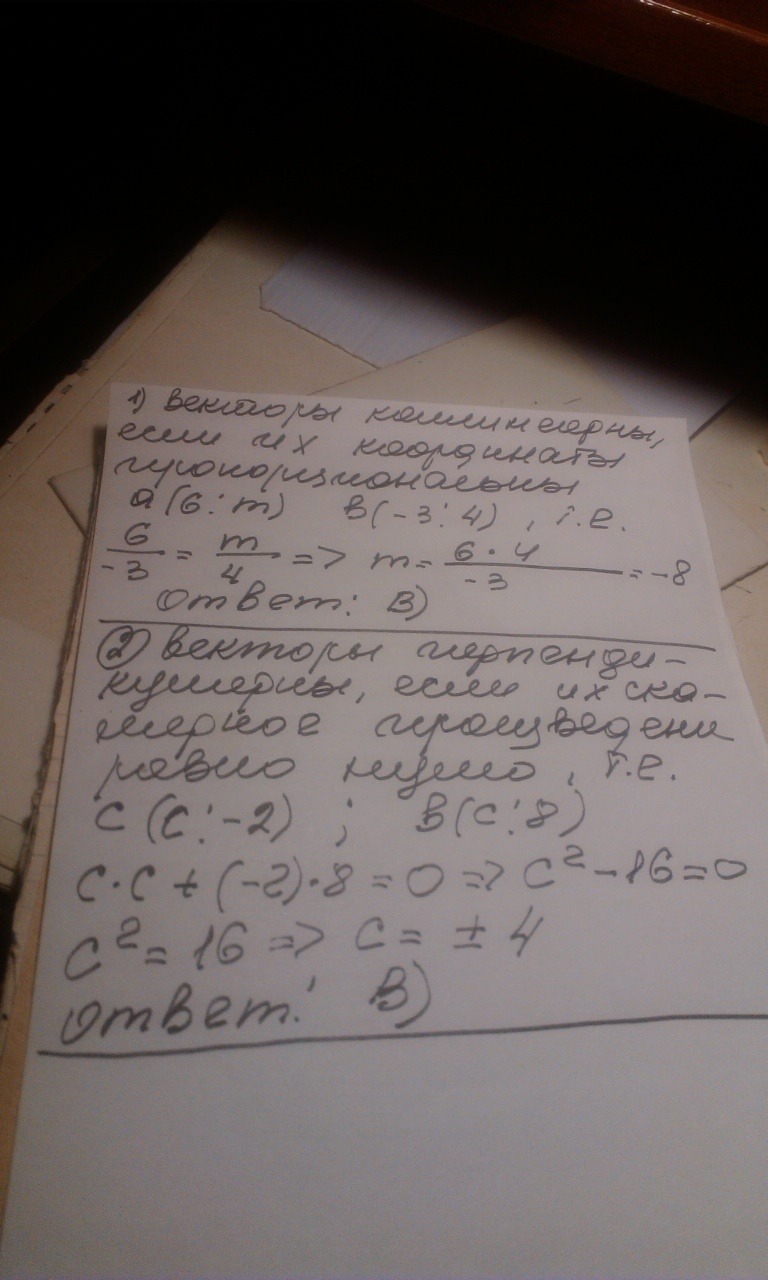 1) векторы коллинеарны,
если их координаты
пропорциональны
a(6; m) в(-3; 4), т.е.
6/-3 = m/4 => m = 6·4/-3 = -8
Ответ: В)
② векторы перпенди-
кулярны, если их ска-
лярное произведени
равно нулю, т.е.
с (с; -2) ; в(с; 8)
с·с + (-2)·8 = 0 => с² - 16 = 0
с² = 16 => с = ± 4
Ответ: В)